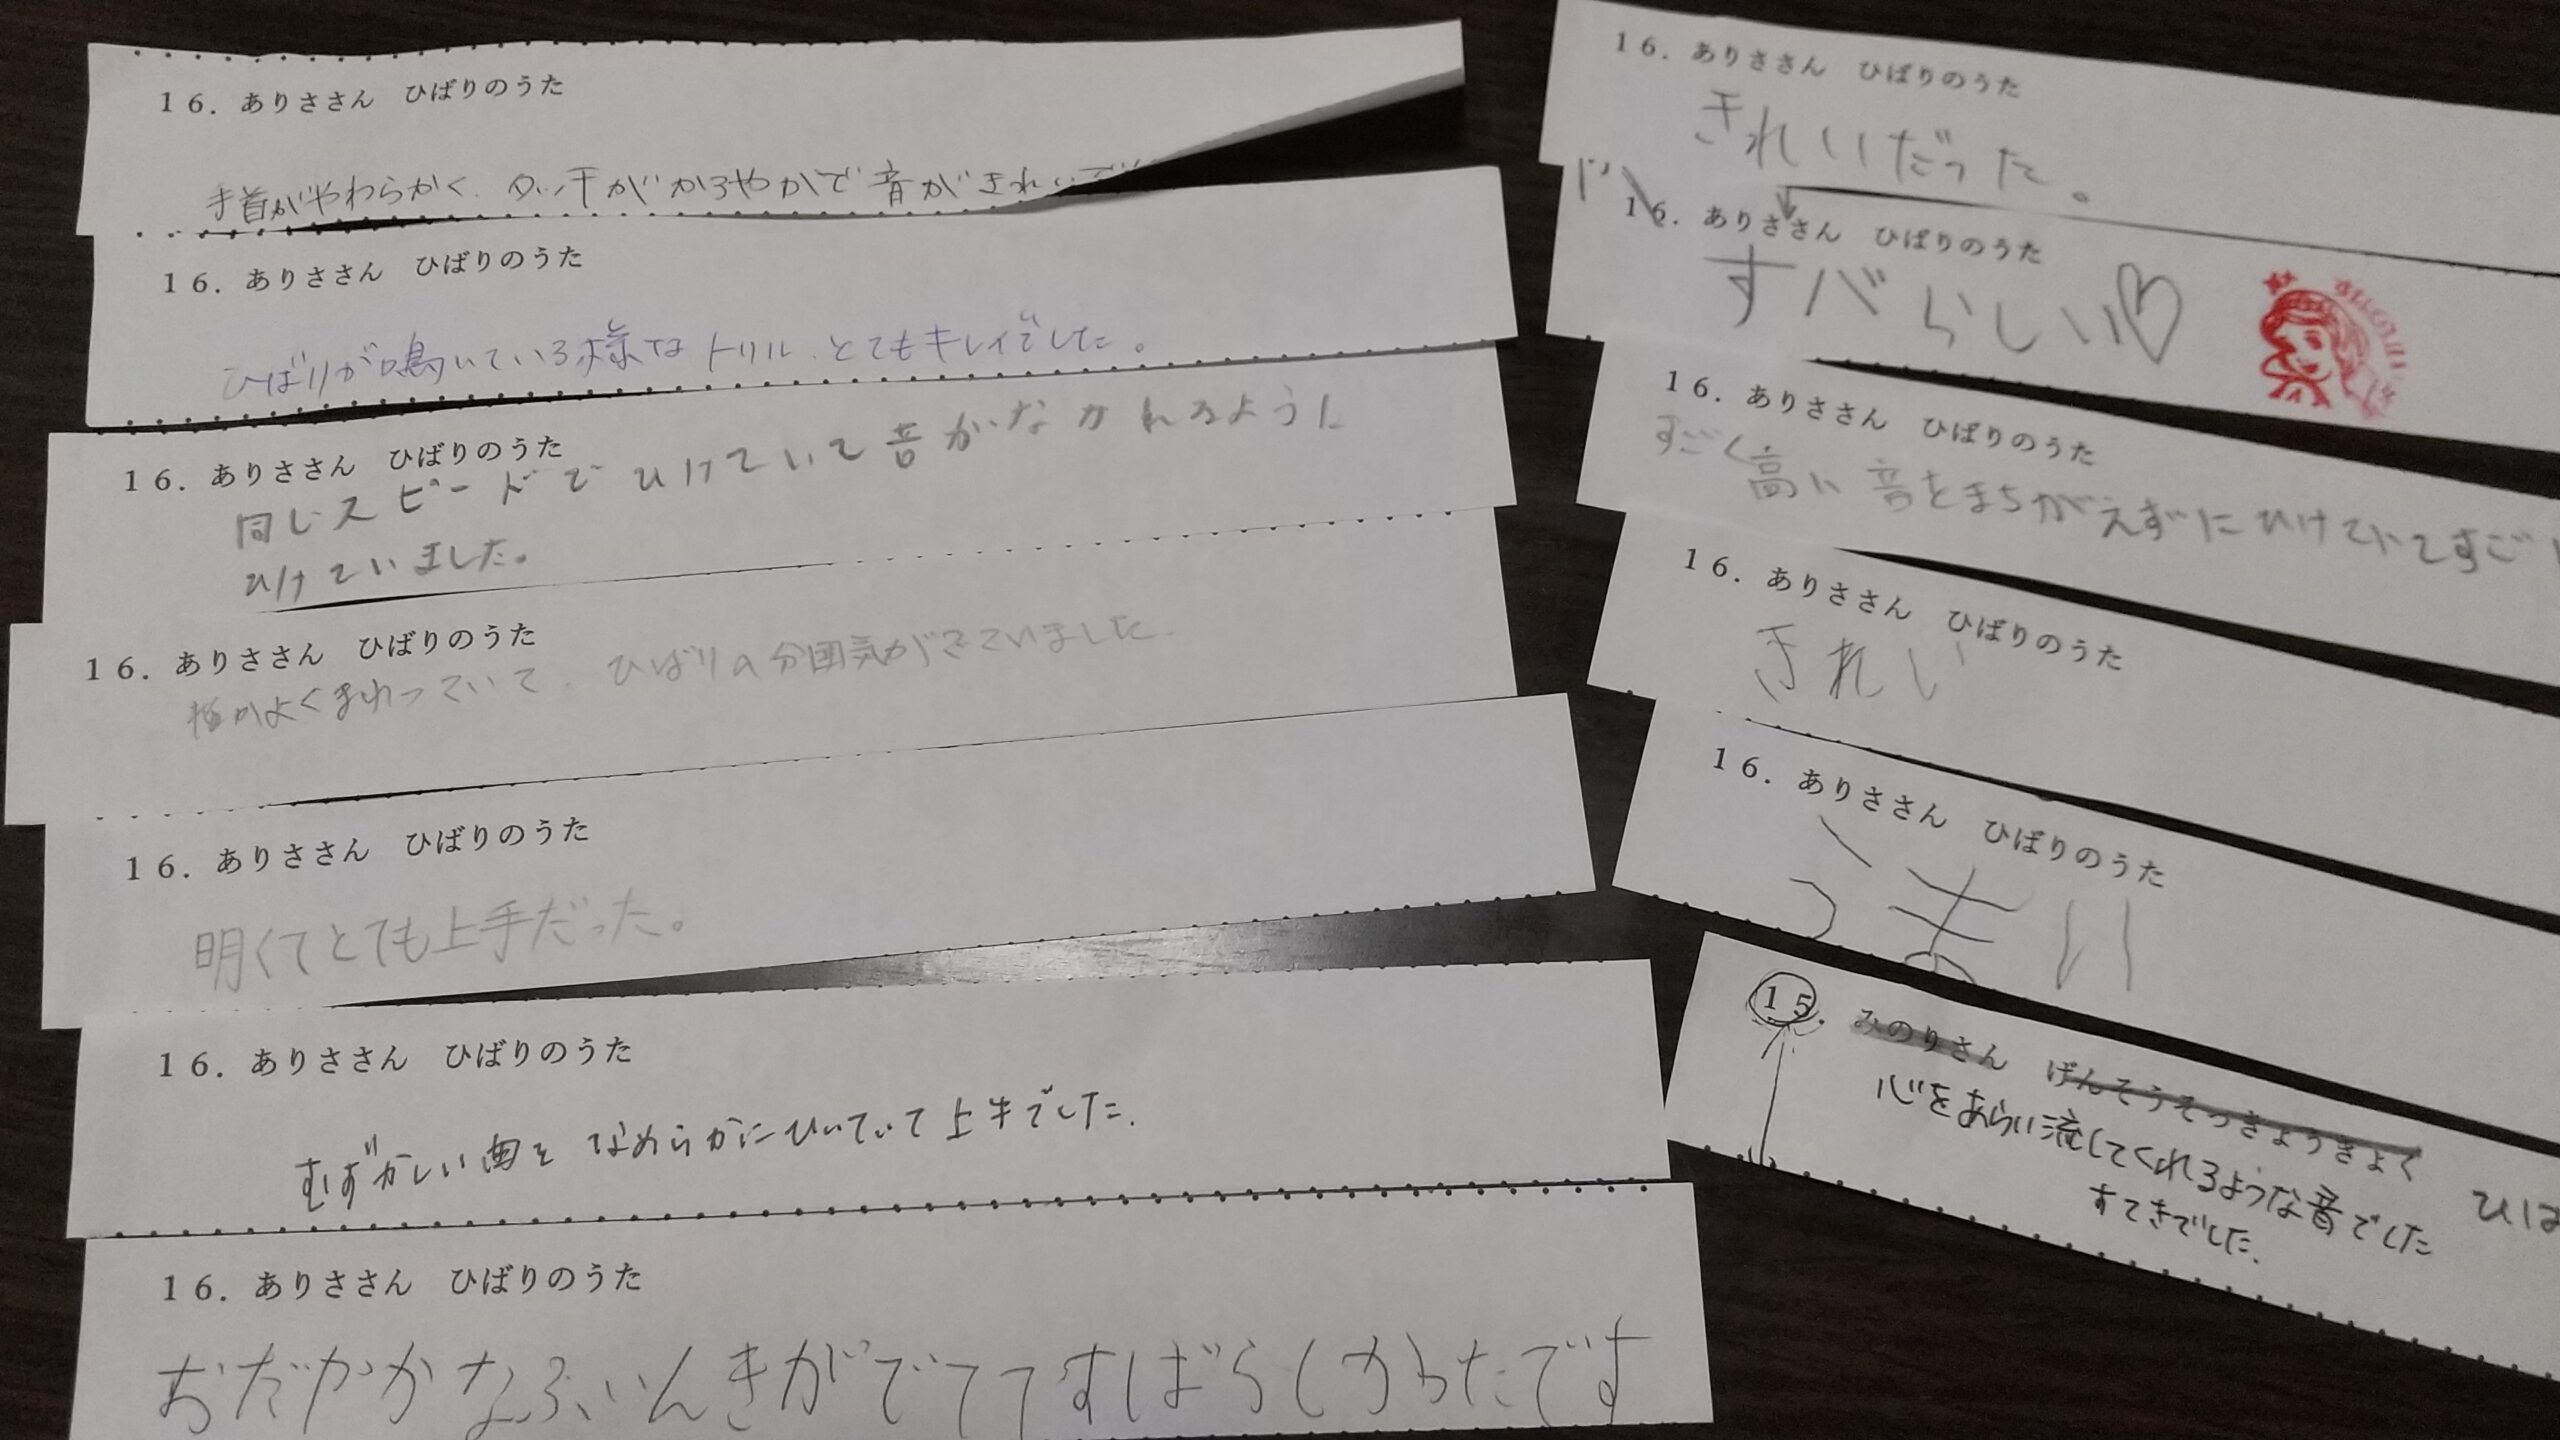 16. ありささん ひばりのうた
手首がやわらかく、タッチがかろやかで音がきれいで
16. ありささん ひばりのうた
ひばりが鳴いている様なトリル、とてもキレイでした。
16. ありささん ひばりのうた
同じスピードでひけていて音がながれるように
ひけていました。
16. ありささん ひばりのうた
指がよくまわっていて、ひばりの分囲気がでていました
16. ありささん ひばりのうた
明くてとても上手だった。
16. ありささん ひばりのうた
むずかしい曲を なめらかにひいていて上手でした.
16. ありささん ひばりのうた
おだやかなふいんきがでててすばらしかったです
16. ありささん ひばりのうた
きれいだった。
16. ありささん ひばりのうた
すバらしい♡
16. ありささん ひばりのうた
すごく高い音をまちがえずにひけていてすごい
16. ありささん ひばりのうた
きれい
16. ありささん ひばりのうた
うまい
15. みのりさん げんそうそっきょうきょく ひば
心をあらい流してくれるような音でした
すてきでした.